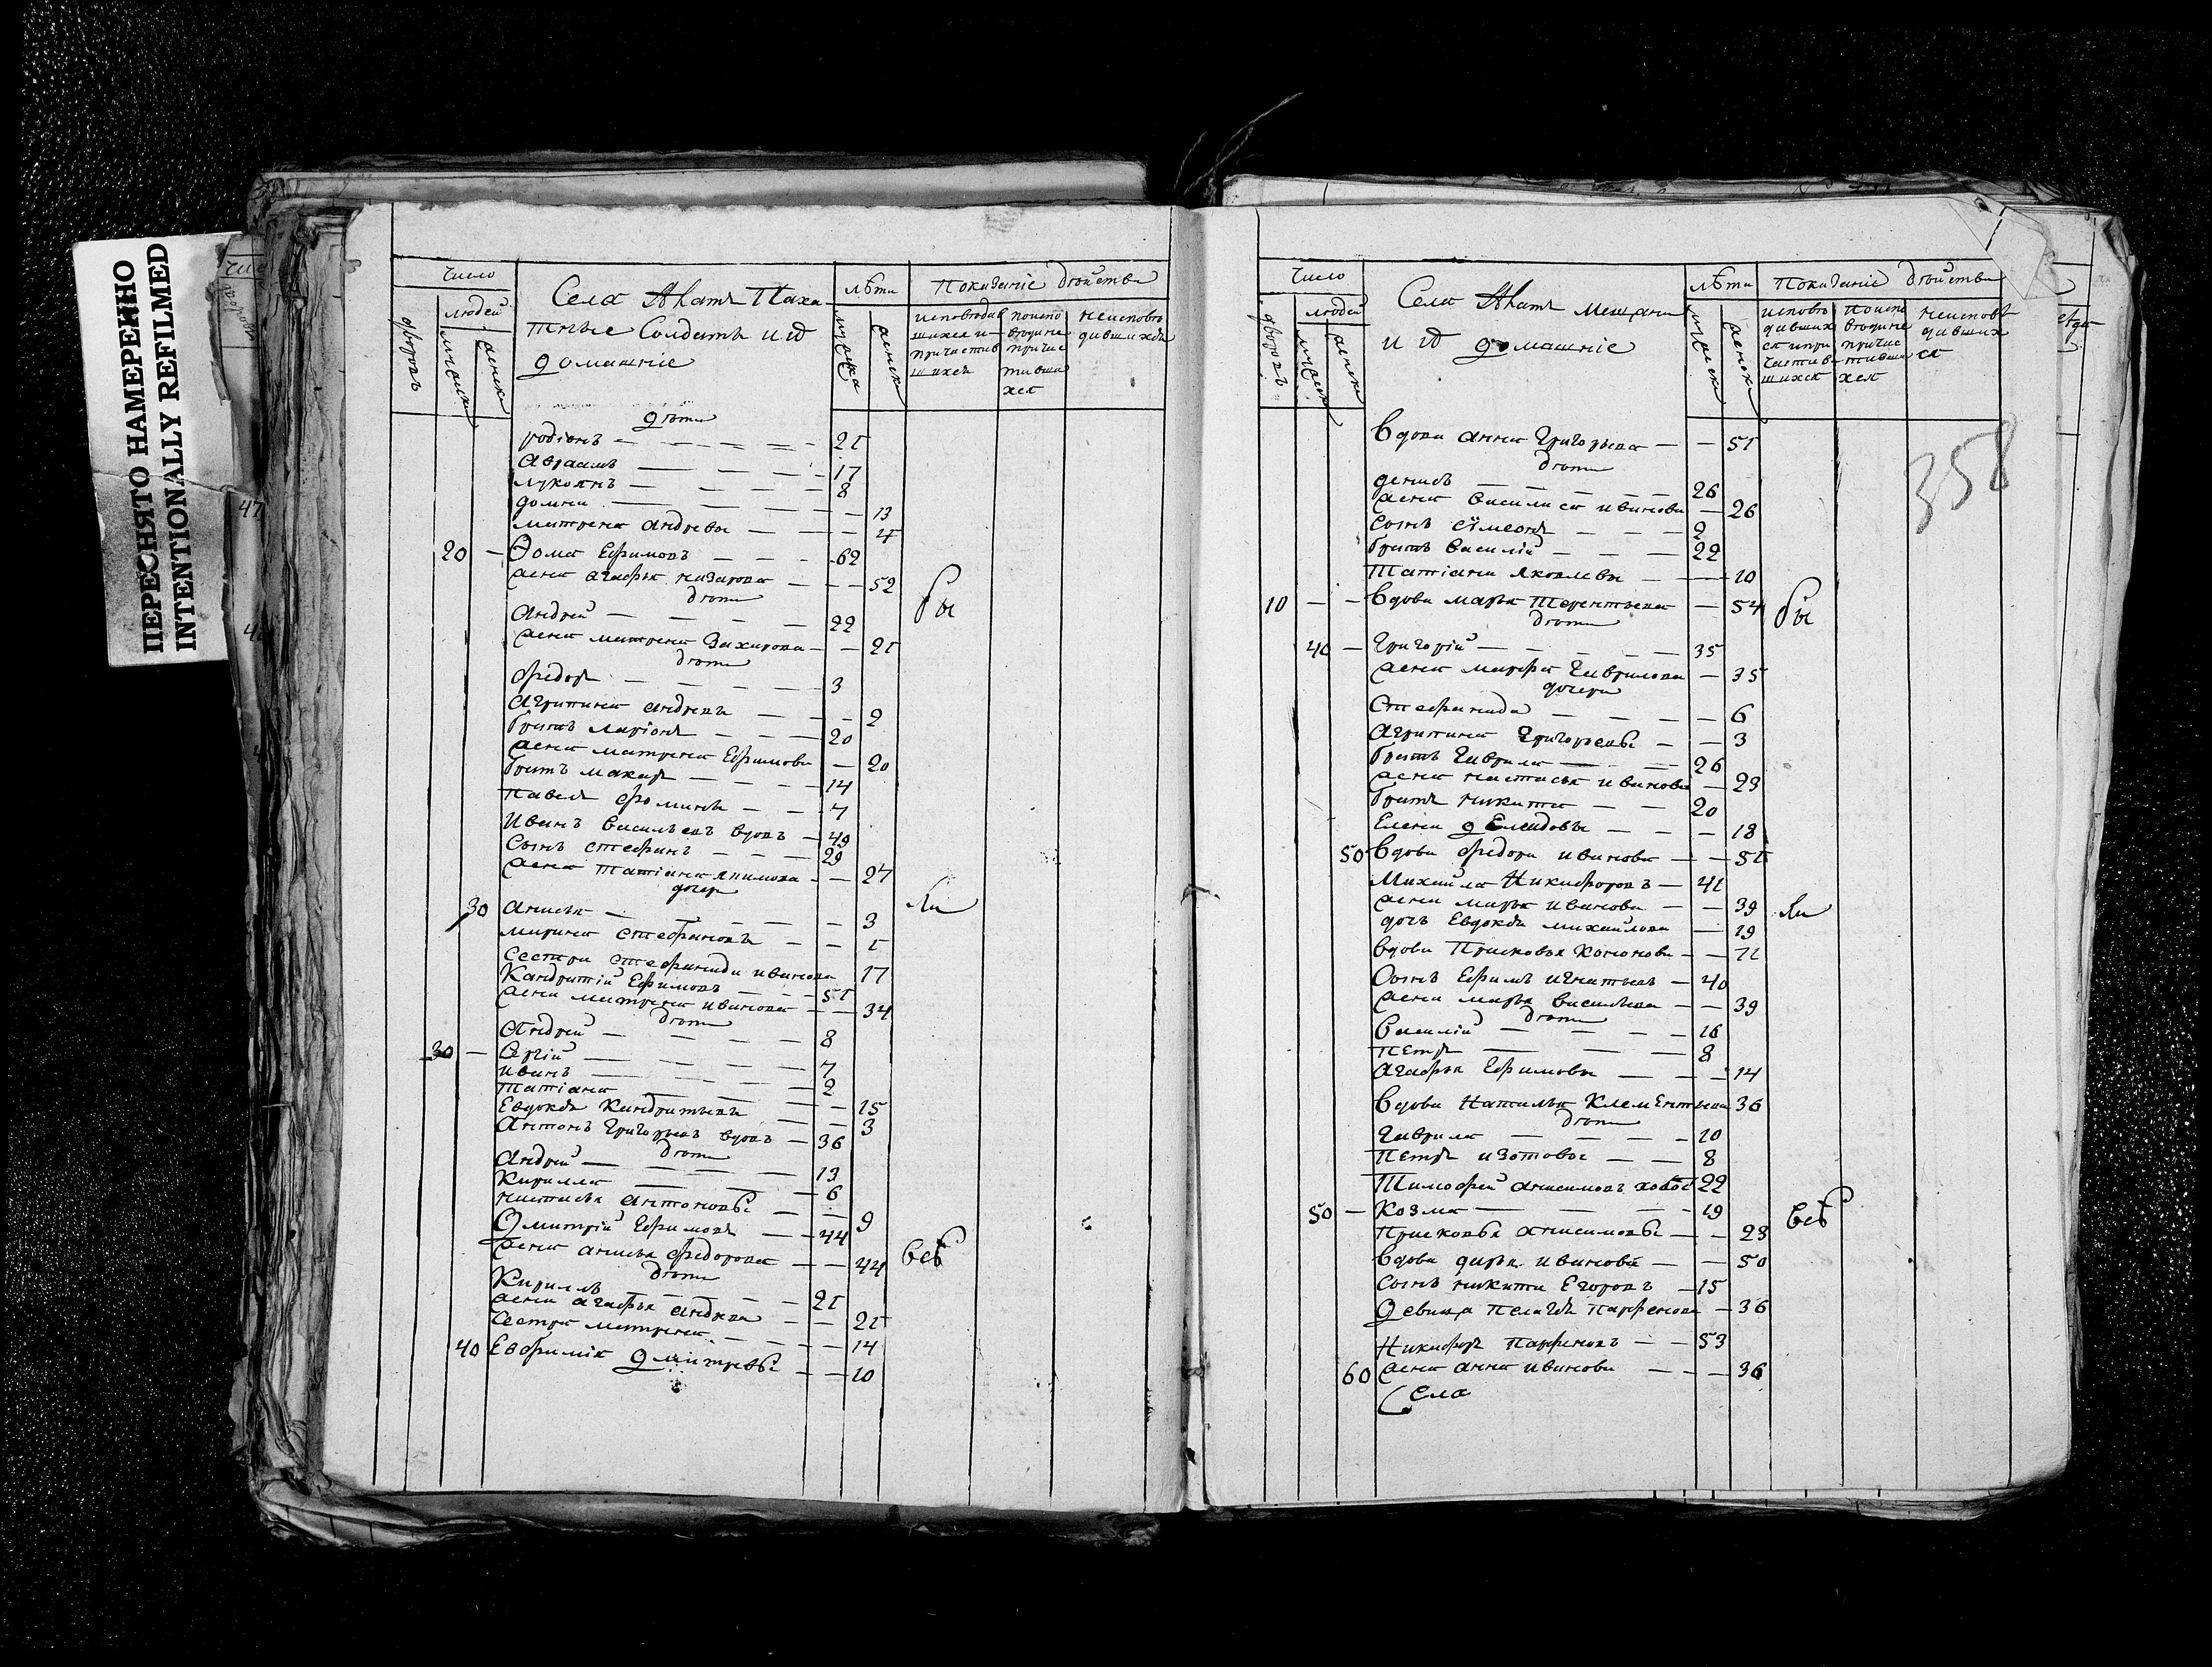 ПЕРЕСНЯТО НАМЕРЕННО
INTENTIONALLY REFILMED
47
Число
дворовъ
людей
мужска
женска
Села Акатъ Паха
тные Солдатъ и ихъ
домашніе
лѣта
мужска
женска
Показаніе действа
исповѣдав
шихся и
причастив
шихся
поиспо
ведине
причас
тивши
хся
неисповѣ
дившихся
дѣти
родіонъ 21
Авраамъ 17
лукоянъ 8
домна 13
матрена андревы 4
20 Ѳома Ефимовъ 62
жена агафья назарова 52
дѣти
Андрей 22
жена матрена Захарова 21
дѣти
Федоръ 3
Агрипина андревы 2
братъ ларіонъ 20
жена матрена Ефимова 20
братъ макаръ 14
павелъ фомины 7
Иванъ васильевъ вдовъ 49
сынъ стефанъ 29
жена татіана якимова 27
дочери
30 анисья 3
марина стефановы 1
Сестра стефанида иванова 17
Кандратій Ефимовъ 51
жена матрена иванова 34
дѣти
Андрей 8
30 Сергій 7
иванъ 2
татіана 15
Евдокія Кандратьевы 3
Антонъ Григорьевъ вдовъ 36
дѣти
Андрей 13
Кирилла 6
настасья антоновы 9
Дмитрій Ефимовъ 44
жена анисья федорова 44
дѣти
Кириллъ 21
жена агафья андрева 21
Сестра матрена 14
40 Евфимія дмитревы 10
бы
ли
всѣ
Число
дворовъ
людей
мужска
женска
Села Акатъ мещане
и ихъ домашніе
лѣта
мужска
женска
Показаніе действа
исповѣ
дивших
ся и при
частив
шихся
поиспо
ведине
причас
тивши
хся
неисповѣ
дивших
ся
358
вдова анна Григорьева 51
дѣти
денисъ 26
жена василиса иванова 26
сынъ сімеонъ 2
братъ василій 22
татіана яковлевы 10
10 вдова марья терентьева 54
дѣти
40 Григорій 35
жена марфа Гаврилова 35
дочери
Стефанида 6
Агрипина Григорьевы 3
братъ Гаврила 26
жена настасья иванова 23
братъ никита 20
Елена 18
50 вдова федора иванова 51
Михайла Никифоровъ 41
жена марья иванова 39
дочь Евдокія михайлова 19
вдова Прасковья Кононова 71
сынъ Ефимъ игнатьевъ 40
жена марья васильева 39
дѣти
василій 16
Петръ 8
агафья Ефимовы 14
вдова Наталья Клементьева 36
дѣти
Гаврила 10
Петръ изотовы 8
Тимофей анисимовъ холост 22
50 Козма 19
Прасковья анисимовы 23
вдова дарья иванова 50
сынъ никита Егоровъ 15
девица Пелагея парфенова 36
Никифоръ парфеновъ 53
60 жена анна иванова 36
Села
бы
ли
всѣ